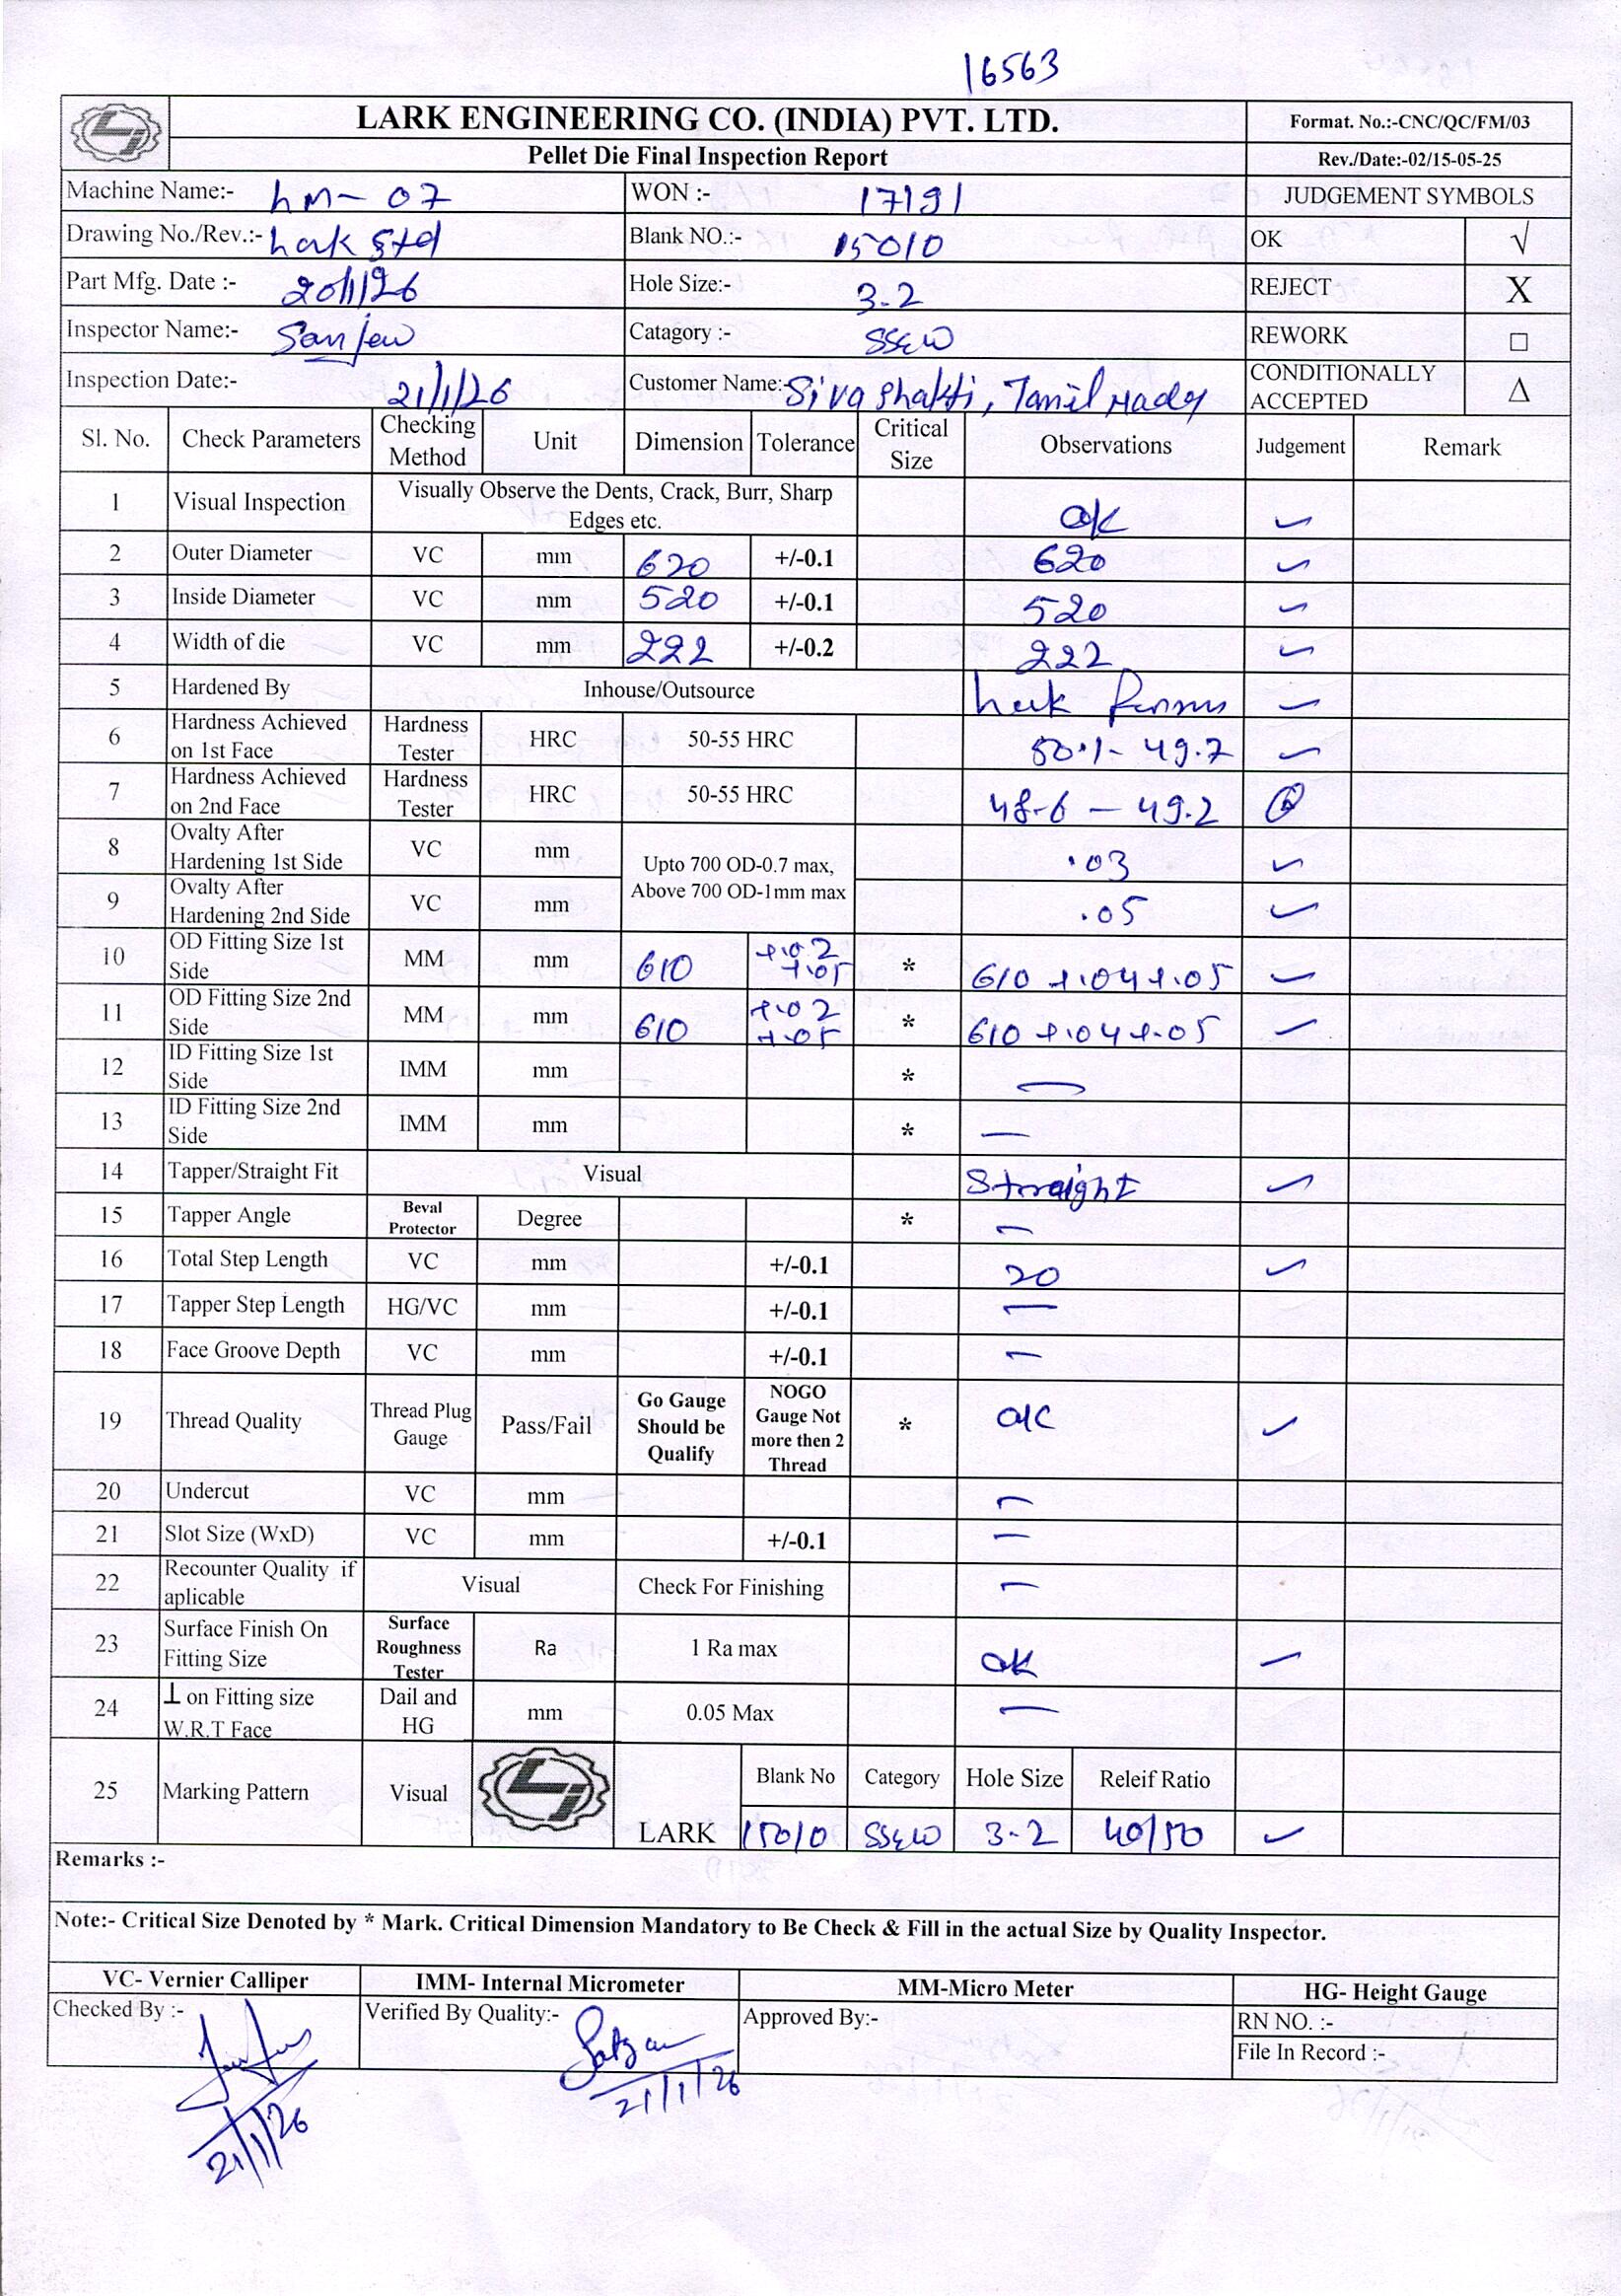 16563
LARK ENGINEERING CO. (INDIA) PVT. LTD.
Format. No.:-CNC/QC/FM/03
Pellet Die Final Inspection Report
Rev./Date:-02/15-05-25
Machine Name:- LM- 07 WON :- 17191 JUDGEMENT SYMBOLS
Drawing No./Rev.:- Lark Std Blank NO.:- 15010 OK √
Part Mfg. Date :- 20/1/26 Hole Size:- 3.2 REJECT X
Inspector Name:- Sanjeev Catagory :- SSEW REWORK □
Inspection Date:- 21/1/26 Customer Name:- Siva Shakti, Tamil Nadu CONDITIONALLY ACCEPTED Δ
Sl. No. Check Parameters Checking Method Unit Dimension Tolerance Critical Size Observations Judgement Remark
1 Visual Inspection Visually Observe the Dents, Crack, Burr, Sharp Edges etc. ok ✓
2 Outer Diameter VC mm 620 +/-0.1 620 ✓
3 Inside Diameter VC mm 520 +/-0.1 520 ✓
4 Width of die VC mm 222 +/-0.2 222 ✓
5 Hardened By Inhouse/Outsource ✓
6 Hardness Achieved on 1st Face Hardness Tester HRC 50-55 HRC 50.1- 49.7 ✓
7 Hardness Achieved on 2nd Face Hardness Tester HRC 50-55 HRC 48.6 — 49.2
8 Ovalty After Hardening 1st Side VC mm Upto 700 OD-0.7 max, Above 700 OD-1mm max .03 ✓
9 Ovalty After Hardening 2nd Side VC mm .05 ✓
10 OD Fitting Size 1st Side MM mm 610 +.02 +.05 * 610 +.04+.05 ✓
11 OD Fitting Size 2nd Side MM mm 610 +.02 +.05 * 610 +.04+.05 ✓
12 ID Fitting Size 1st Side IMM mm * —
13 ID Fitting Size 2nd Side IMM mm * —
14 Tapper/Straight Fit Visual Straight ✓
15 Tapper Angle Beval Protector Degree * —
16 Total Step Length VC mm +/-0.1 20 ✓
17 Tapper Step Length HG/VC mm +/-0.1 —
18 Face Groove Depth VC mm +/-0.1 —
19 Thread Quality Thread Plug Gauge Pass/Fail Go Gauge Should be Qualify NOGO Gauge Not more then 2 Thread * ok ✓
20 Undercut VC mm —
21 Slot Size (WxD) VC mm +/-0.1 —
22 Recounter Quality if aplicable Visual Check For Finishing —
23 Surface Finish On Fitting Size Surface Roughness Tester Ra 1 Ra max ok ✓
24 ⊥ on Fitting size W.R.T Face Dail and HG mm 0.05 Max —
25 Marking Pattern Visual LARK Blank No Category Hole Size Releif Ratio
15010 SSEW 3.2 40/50 ✓
Remarks :-
Note:- Critical Size Denoted by * Mark. Critical Dimension Mandatory to Be Check & Fill in the actual Size by Quality Inspector.
VC- Vernier Calliper IMM- Internal Micrometer MM-Micro Meter HG- Height Gauge
Checked By :- Verified By Quality:- Approved By:- RN NO. :-
File In Record :-
21/1/26
21/1/26